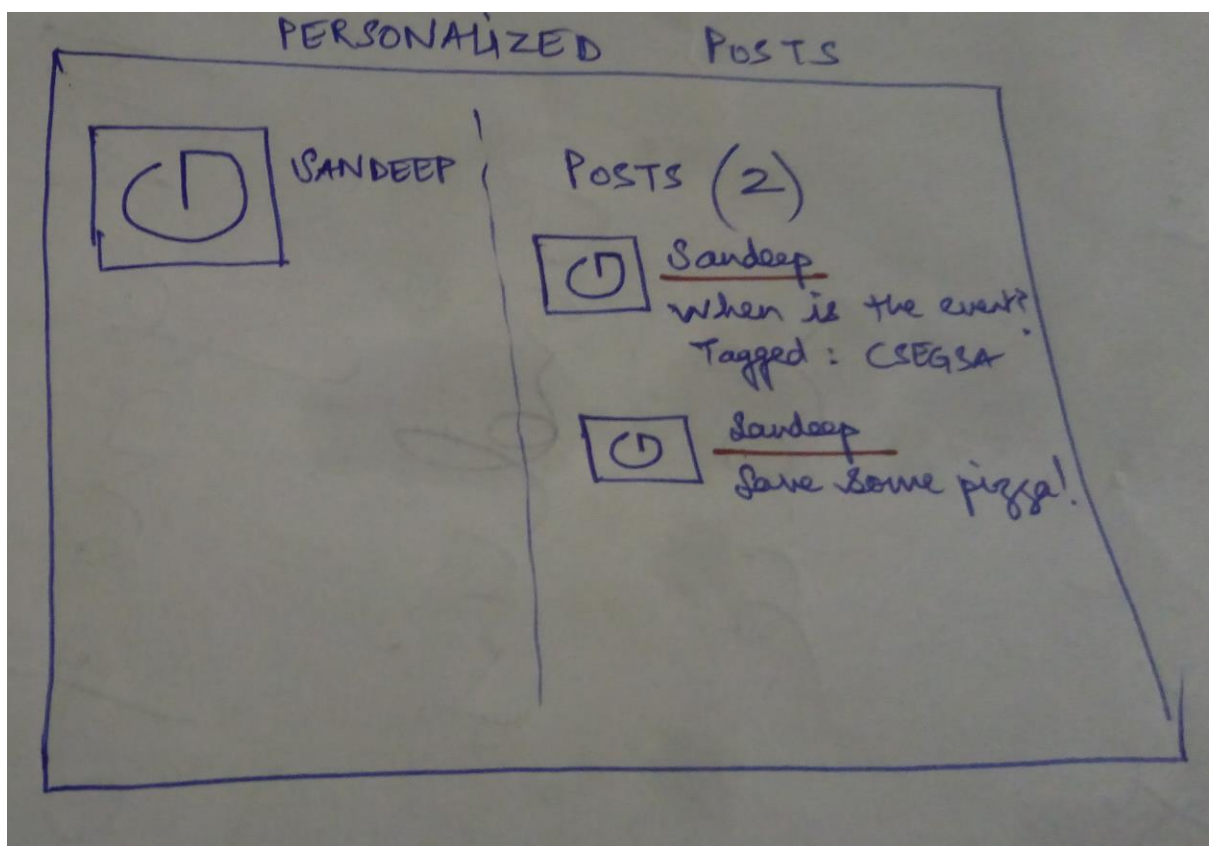 PERSONALIZED POSTS
SANDEEP
POSTS (2)
Sandeep
When is the event?
Tagged : CSEGSA
Sandeep
Save some pizza!